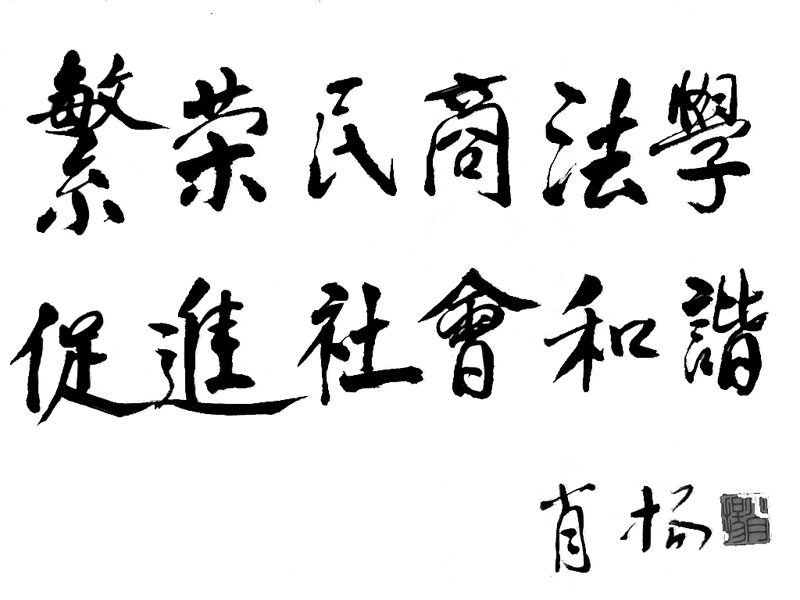 繁荣民商法學
促進社會和諧
肖扬